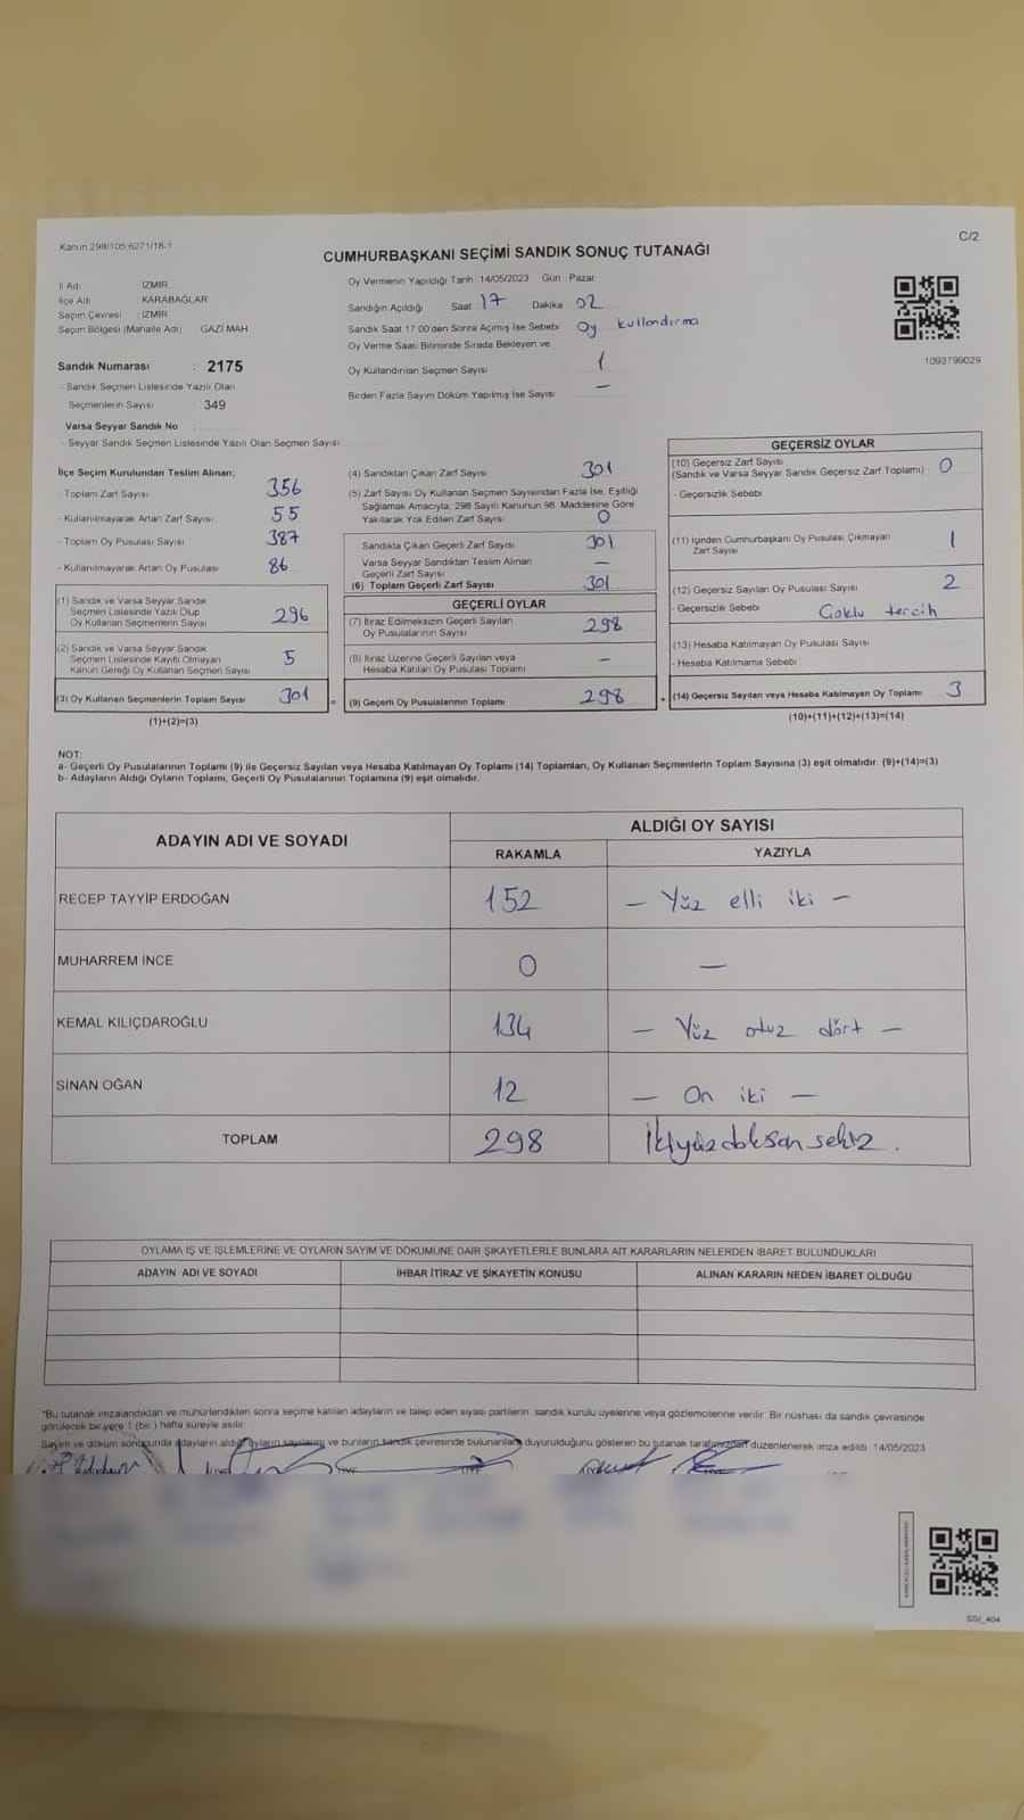 Kanun 298/105 6271/18-1
C/2
CUMHURBAŞKANI SEÇİMİ SANDIK SONUÇ TUTANAĞI
İl Adı : İZMİR
İlçe Adı : KARABAĞLAR
Seçim Çevresi : İZMİR
Seçim Bölgesi (Mahalle Adı) : GAZİ MAH
Sandık Numarası : 2175
- Sandık Seçmen Listesinde Yazılı Olan
Seçmenlerin Sayısı : 349
Varsa Seyyar Sandık No
- Seyyar Sandık Seçmen Listesinde Yazılı Olan Seçmen Sayısı
Oy Vermenin Yapıldığı Tarih : 14/05/2023 Gün : Pazar
Sandığın Açıldığı Saat 17 Dakika 02
Sandık Saat 17.00'den Sonra Açılmış İse Sebebi Oy kullandırma
Oy Verme Saati Bitiminde Sırada Bekleyen ve
Oy Kullandırılan Seçmen Sayısı 1
Birden Fazla Sayım Döküm Yapılmış İse Sayısı —
1093799029
İlçe Seçim Kurulundan Teslim Alınan;
- Toplam Zarf Sayısı 356
- Kullanılmayarak Artan Zarf Sayısı 55
- Toplam Oy Pusulası Sayısı 387
- Kullanılmayarak Artan Oy Pusulası 86
(1) Sandık ve Varsa Seyyar Sandık
Seçmen Listesinde Yazılı Olup
Oy Kullanan Seçmenlerin Sayısı 296
(2) Sandık ve Varsa Seyyar Sandık
Seçmen Listesinde Kayıtlı Olmayan
Kanun Gereği Oy Kullanan Seçmen Sayısı 5
(3) Oy Kullanan Seçmenlerin Toplam Sayısı 301
(1)+(2)=(3)
(4) Sandıktan Çıkan Zarf Sayısı 301
(5) Zarf Sayısı Oy Kullanan Seçmen Sayısından Fazla İse, Eşitliği
Sağlamak Amacıyla, 298 Sayılı Kanunun 98. Maddesine Göre
Yakılarak Yok Edilen Zarf Sayısı 0
Sandıkta Çıkan Geçerli Zarf Sayısı 301
Varsa Seyyar Sandıktan Teslim Alınan
Geçerli Zarf Sayısı —
(6) Toplam Geçerli Zarf Sayısı 301
GEÇERLİ OYLAR
(7) İtiraz Edilmeksizin Geçerli Sayılan
Oy Pusulalarının Sayısı 298
(8) İtiraz Üzerine Geçerli Sayılan veya
Hesaba Katılan Oy Pusulası Toplamı —
= (9) Geçerli Oy Pusulalarının Toplamı 298
GEÇERSİZ OYLAR
(10) Geçersiz Zarf Sayısı
(Sandık ve Varsa Seyyar Sandık Geçersiz Zarf Toplamı) 0
- Geçersizlik Sebebi
(11) İçinden Cumhurbaşkanı Oy Pusulası Çıkmayan
Zarf Sayısı 1
(12) Geçersiz Sayılan Oy Pusulası Sayısı 2
- Geçersizlik Sebebi Çoklu tercih
(13) Hesaba Katılmayan Oy Pusulası Sayısı
- Hesaba Katılmama Sebebi
+ (14) Geçersiz Sayılan veya Hesaba Katılmayan Oy Toplamı 3
(10)+(11)+(12)+(13)=(14)
NOT:
a- Geçerli Oy Pusulalarının Toplamı (9) ile Geçersiz Sayılan veya Hesaba Katılmayan Oy Toplamı (14) Toplamları, Oy Kullanan Seçmenlerin Toplam Sayısına (3) eşit olmalıdır. (9)+(14)=(3)
b- Adayların Aldığı Oyların Toplamı, Geçerli Oy Pusulalarının Toplamına (9) eşit olmalıdır.
ADAYIN ADI VE SOYADI ALDIĞI OY SAYISI
RAKAMLA YAZIYLA
RECEP TAYYİP ERDOĞAN 152 — Yüz elli iki —
MUHARREM İNCE 0 —
KEMAL KILIÇDAROĞLU 134 — Yüz otuz dört —
SİNAN OĞAN 12 — On iki —
TOPLAM 298 İkiyüzdoksan sekiz.
OYLAMA İŞ VE İŞLEMLERİNE VE OYLARIN SAYIM VE DÖKÜMÜNE DAİR ŞİKAYETLERLE BUNLARA AİT KARARLARIN NELERDEN İBARET BULUNDUKLARI
ADAYIN ADI VE SOYADI İHBAR İTİRAZ VE ŞİKAYETİN KONUSU ALINAN KARARIN NEDEN İBARET OLDUĞU
*Bu tutanak imzalandıktan ve mühürlendikten sonra seçime katılan adayların ve talep eden siyasi partilerin sandık kurulu üyelerine veya gözlemcilerine verilir. Bir nüshası da sandık çevresinde
görülecek bir yere 1 (bir) hafta süreyle asılır.
Sayım ve döküm sonucunda adayların aldığı oyların sayılarını ve bunların sandık çevresinde bulunanlara duyurulduğunu gösteren bu tutanak tarafımızdan düzenlenerek imza edildi. 14/05/2023